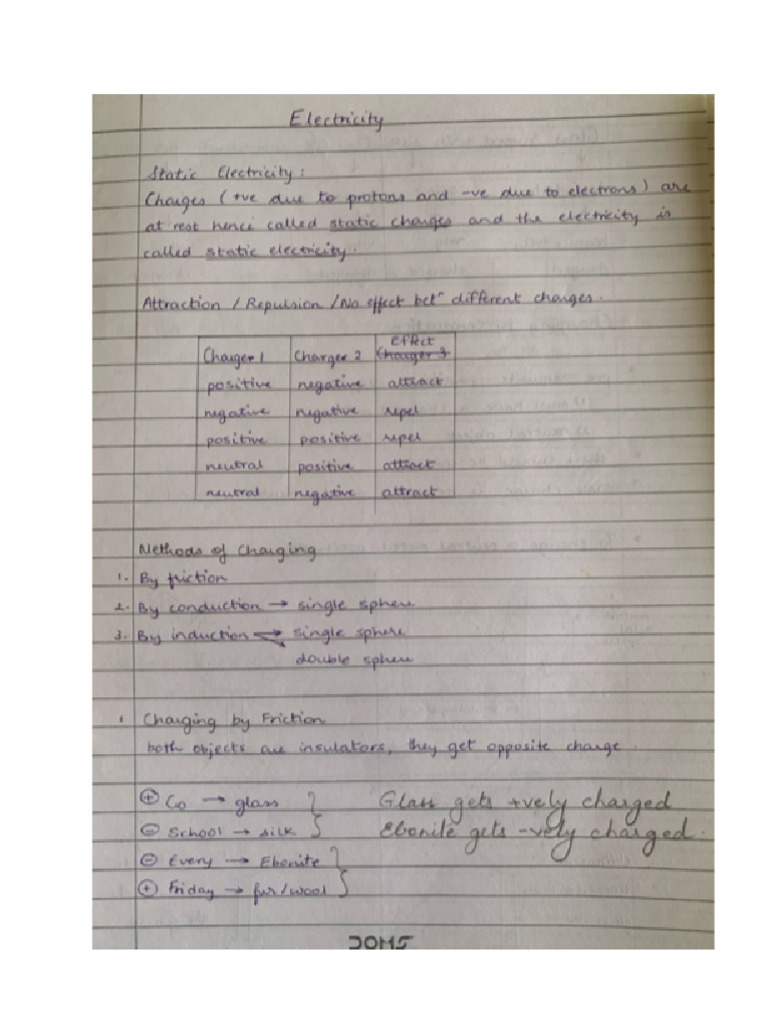 Electricity
Static Electricity:
Charges (+ve due to protons and -ve due to electrons) are
at rest hence called static charges and the electricity is
called static electricity.
Attraction / Repulsion / No effect betⁿ different charges.
Effect
Charger 1 Charger 2 Charger 3
positive negative attract
negative negative repel
positive positive repel
neutral positive attract
neutral negative attract
Methods of Charging
1. By friction
2. By conduction → single sphere
3. By induction → single sphere
double sphere
1 Charging by Friction
both objects are insulators, they get opposite charge.
⊕ Go → glass Glass gets +vely charged
⊖ School → silk Ebonite gets -vely charged.
⊖ Every → Ebonite
⊕ Friday → fur/wool
DOMS